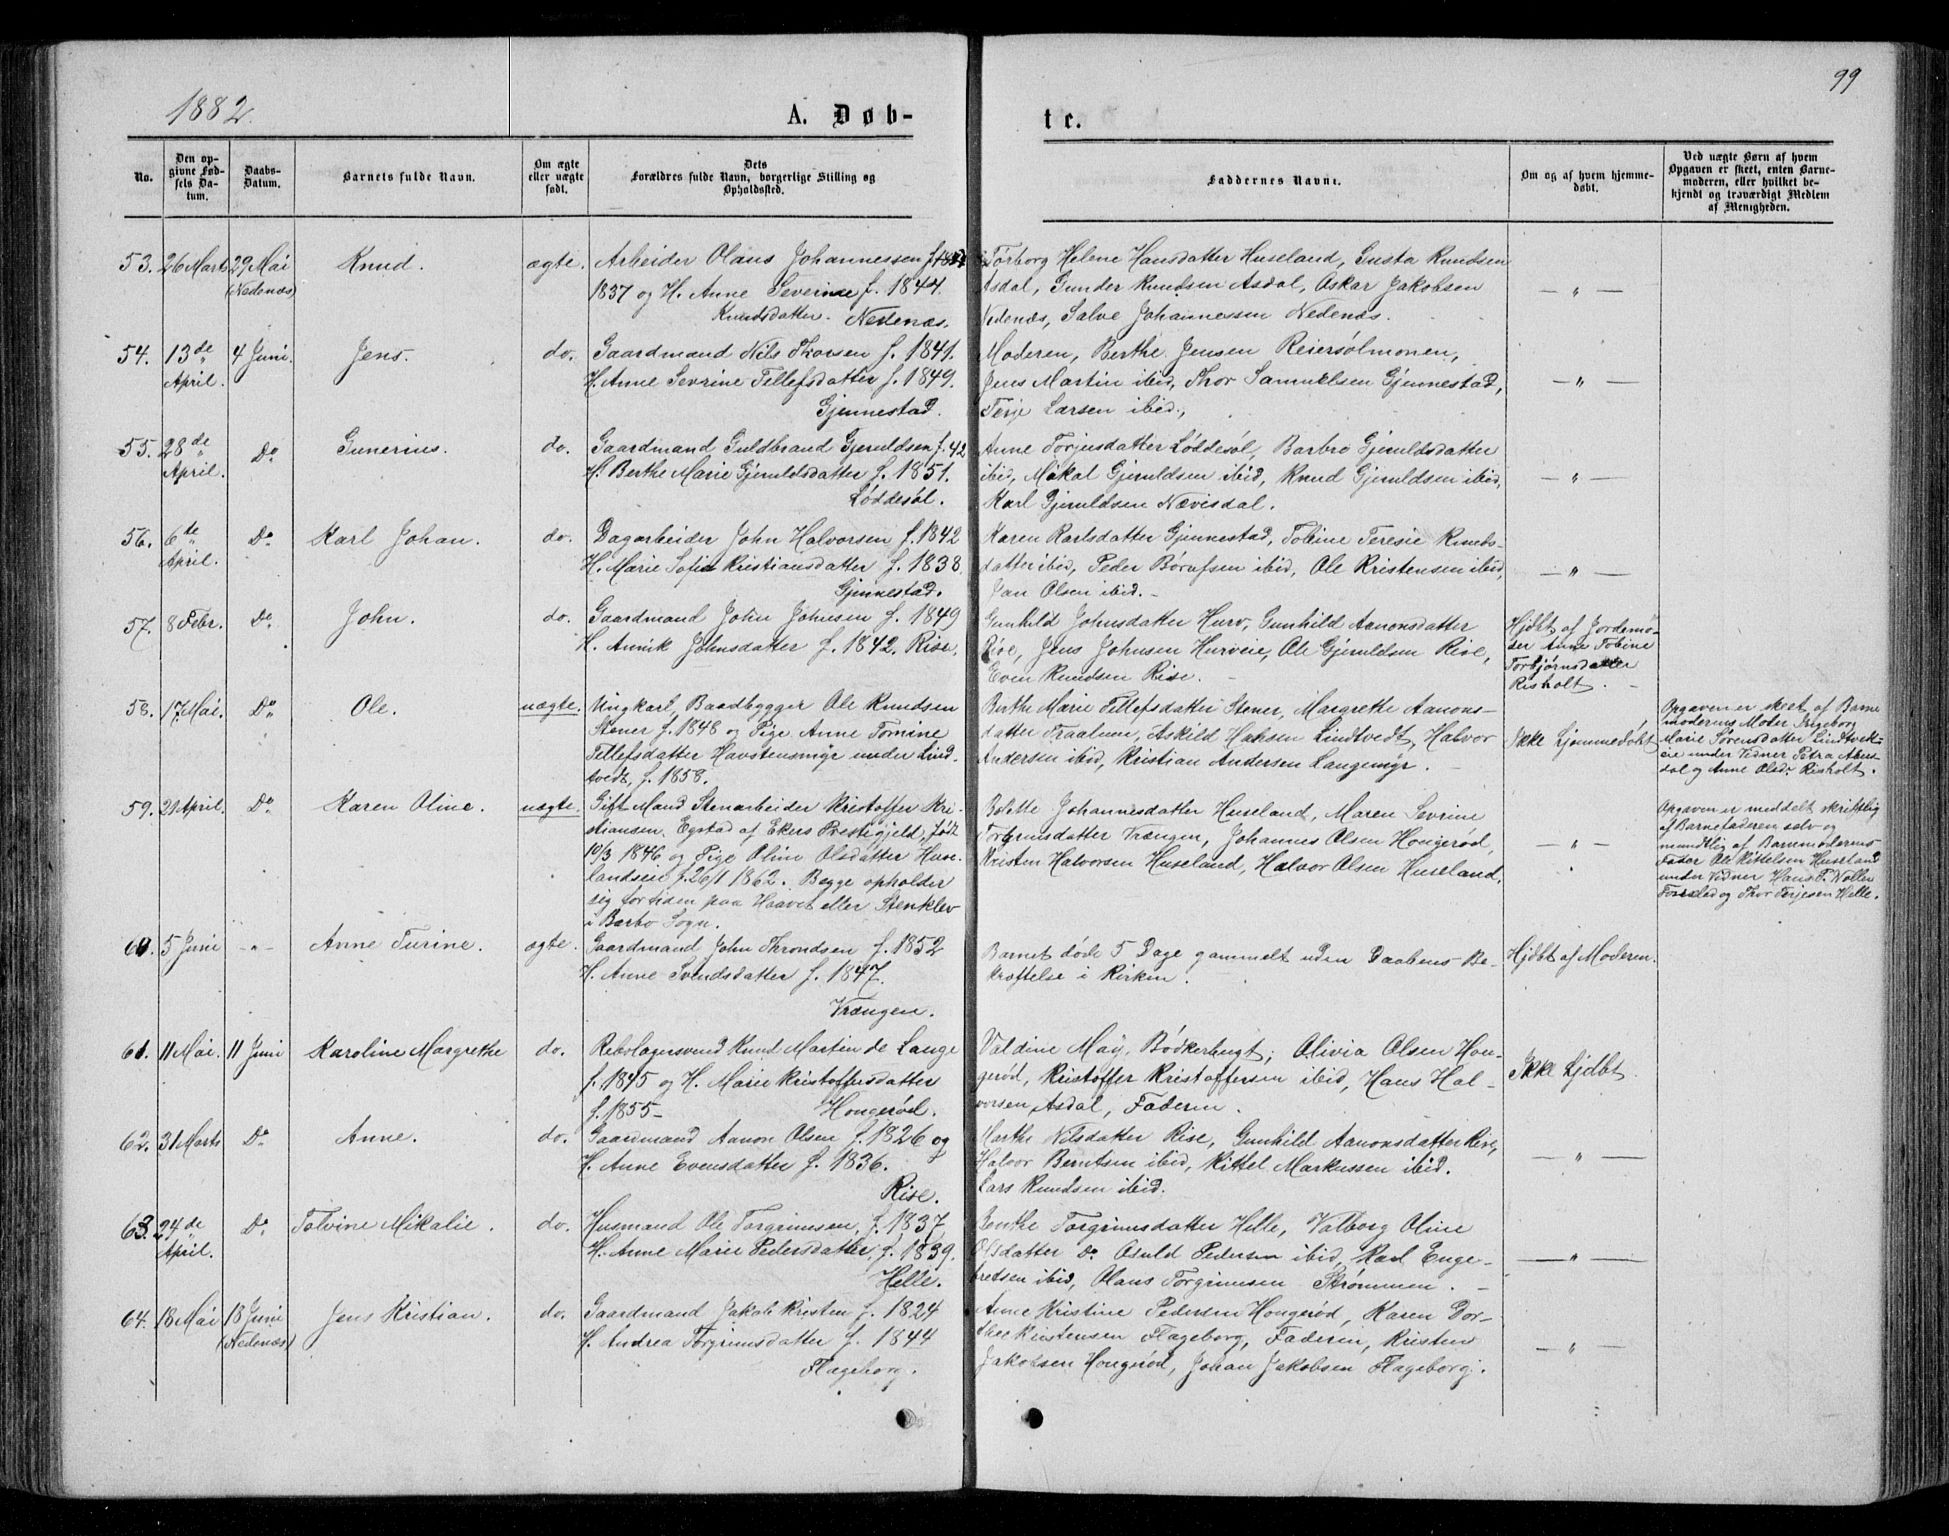 99
1882.
A. Døb-
te.
No.
Den op-
givne Fød-
sels Da-
tum.
Daabs-
Datum.
Barnets fulde Navn.
Om ægte
eller uægte
født.
Dets
Forældres fulde Navn, borgerlige Stilling og
Opholdssted.
Faddernes Navne.
Om og af hvem hjemme-
døbt.
Ved uægte Børn af hvem
Opgaven er skeet, enten Barne-
moderen, eller hvilket be-
kjendt og troværdigt Medlem
af Menigheden.
53. 26 Marts 29 Mai Knud. ægte. Arbeider Olaus Johannessen f.
(Nedenæs) 1837 og H. Anne Severine f. 1844.
Knudsdatter. Nedenæs.
Torborg Helene Hansdatter Huseland, Gusta Knudsen
Asdal, Gunder Knudsen Asdal, Askar Jakobsen
Nedenæs, Salve Johannessen Nedenæs.
— " —
54. 13de 4 Juni. Jens. do. Gaardmand Nils Thorsen f. 1841.
April. H. Anne Sevrine Tellefsdatter f. 1849.
Gjennestad.
Moderen, Berthe Jensen Reiersølmonen,
Jens Martin ibid, Thor Samuelsen Gjennestad,
Terje Larsen ibid.,
— " —
55. 28de Do Gunerius. do. Gaardmand Guldbrand Gjeruldsen f. 42
April. H. Berthe Marie Gjeruldsdatter f. 1851.
Løddesøl.
Anne Torjusdatter Løddesøl, Barbro Gjeruldsdatter
ibid, Mikal Gjeruldsen ibid, Knud Gjeruldsen ibid,
Karl Gjeruldsen Nævisdal.
— " —
56. 6te Do Karl Johan. do. Dagarbeider John Halvorsen f. 1842
April. H. Marie Sofie Kristiansdatter f. 1838.
Gjennestad.
Karen Karlsdatter Gjennestad, Tobine Teresie Knuds-
datter ibid, Peder Børufsen ibid, Ole Kristensen ibid,
Jan Olsen ibid. -
— " —
57. 8 Febr. Do John. do. Gaardmand John Johnsen f. 1849
H. Annik Johnsdatter f. 1842. Rise.
Gunhild Johnsdatter Hurv, Gunhild Aanonsdatter
Rise, Jens Johnsen Hurveie, Ole Gjeruldsen Rise,
Even Knudsen Rise. -
Hjdbt af Jordemo-
der Anne Tobine
Torbjørnsdatter
Risholt. -
58. 17 Mai. Do Ole. uægte. Ungkarl, Baadbygger Ole Knudsen
Stener f. 1848 og Pige Anne Tomine
Tellefsdatter Havstensmyr under Lind-
tvedt, f. 1858.
Berthe Marie Tellefsdatter Stener, Margrethe Aanons-
datter Traalum, Askild Hansen Lindtvedt, Halvor
Andersen ibid, Kristian Andersen Langemyr. -
Ikke hjemmedøbt
Opgaven er skeet af Barne
moderens Moder Ingeborg
Marie Sørensdatter Lindtvedt-
eie under Vidner Petra Aben-
dal og Anne Olsd: Risholt.
59. 21 April. Do Karen Oline. uægte. Gift Mand Stenarbeider Kristoffer Kri-
stiansen Egstad af Ekers Prestegjeld, født
10/3 1846 og Pige Oline Olsdatter Huse-
landseie f. 26/1 1862. Begge opholder
sig for tiden paa Haavet eller Stenklev
i Barbo Sogn.
Bolette Johannesdatter Huseland, Maren Sevrine
Torgrimsdatter Vrængen, Johannes Olsen Hongerød,
Kristen Halvorsen Huseland, Halvor Olsen Huseland.
— " —
Opgaven er meddelt skriftlig
af Barnefaderen selv og
mundtlig af Barnmoderens
Fader Ole Kittelsen Huseland
under Vidner Hans T. Nolle
Torsklad og Thor Terjesen Helle.
60. 5 Juni -"- Anne Turine. ægte. Gaardmand John Throndsen f. 1852
H. Anne Svendsdatter f. 1847.
Vrængen.
Barnet døde 5 Dage gammelt uden Daabens Be-
kræftelse i Kirken.
Hjdbt af Moderen.
61. 11 Mai. 11 Juni Karoline Margrethe do. Rebslagersvend Knud Martin de Lange
f. 1845 og H. Marie Kristoffersdatter
f. 1855- Hongerød.
Valdine May. Bødkerbugt, Olivia Olsen Hon-
gerød, Kristoffer Kristoffersen ibid, Hans Hal-
vorsen Asdal, Faderen.
Ikke hjdbt
62. 31 Marts Do Anne. do. Gaardmand Aanon Olsen f. 1826 og
H. Anne Evensdatter f. 1836.
Rise.
Marthe Nilsdatter Rise, Gunhild Aanonsdatter Rise,
Halvor Berntsen ibid, Kittel Markussen ibid.
Lars Knudsen ibid.
— " —
63. 24de Do Tolvine Mikalie. do. Husmand Ole Torgrimsen f. 1837
April. H. Anne Marie Pedersdatter f. 1839.
Helle.
Benthe Torgrimsdatter Helle, Valborg Oline
Olsdatter do Osuld Pedersen ibid, Karl Enge-
bretsen ibid, Olaus Torgrimsen Strømmen. -
— " —
64. 18 Mai 18 Juni Jens Kristian. do. Gaardmand Jakob Kristen f. 1824
(Nedenæs) H. Andrea Torgrimsdatter f. 1844
Flageborg.
Anne Kristine Pedersen Hongerød, Karen Dor-
thee Kristensen Flageborg, Faderen, Kristen
Jakobsen Hongerød, Johan Jakobsen Flageborg.
— " —